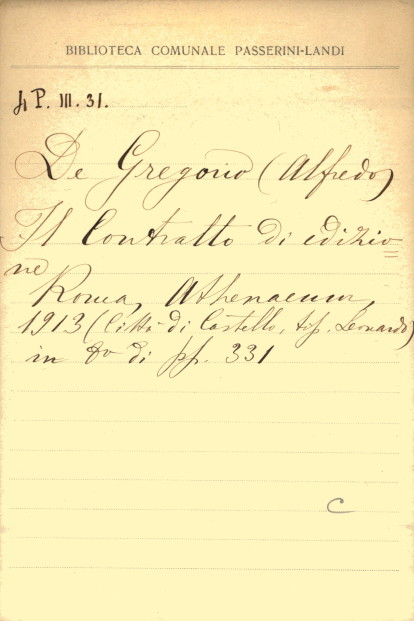 BIBLIOTECA COMUNALE PASSERINI-LANDI
4 P. III. 31.
De Gregorio (Alfredo)
Il Contratto di edizio=
ne
Roma, Athenaeum,
1913 (Città di Castello, tip. Leonardo)
in 8º di pp. 331
C